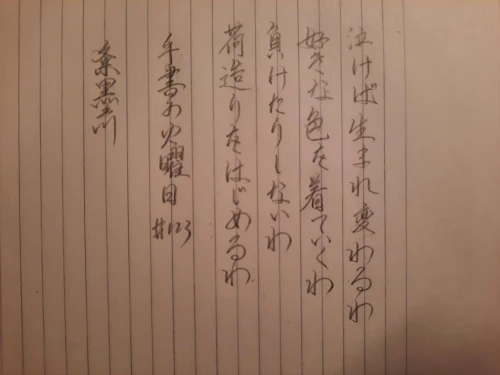 泣けば生まれ変わるわ
好きな色を着ていくわ
負けたりしないわ
荷造りをはじめるわ
手書きの火曜日 #123
粂黒川